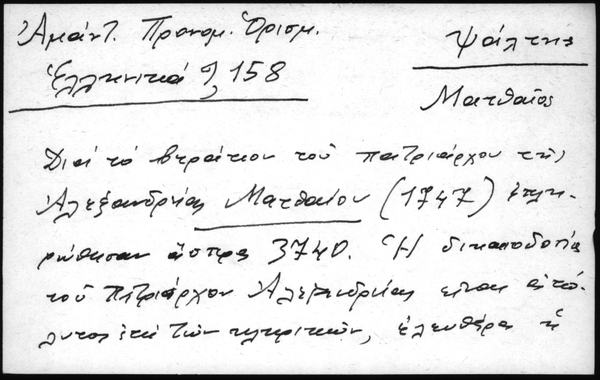 Ἀμάντ. Προνομ. Ὁρισμ.
Ἑλληνικά 9, 158
Ψάλτης
Ματθαῖος
Διά τό βεράτιον τοῦ πατριάρχου τῆς
Ἀλεξανδρείας Ματθαίου (1747) ἐπλη-
ρώθησαν ἄσπρα 3740. Ἡ δικαιοδοσία
τοῦ Πατριάρχου Ἀλεξανδρείας εἶναι ἀπό-
λυτος ἐπί τῶν κληρικῶν, ἐλευθέρα ἡ